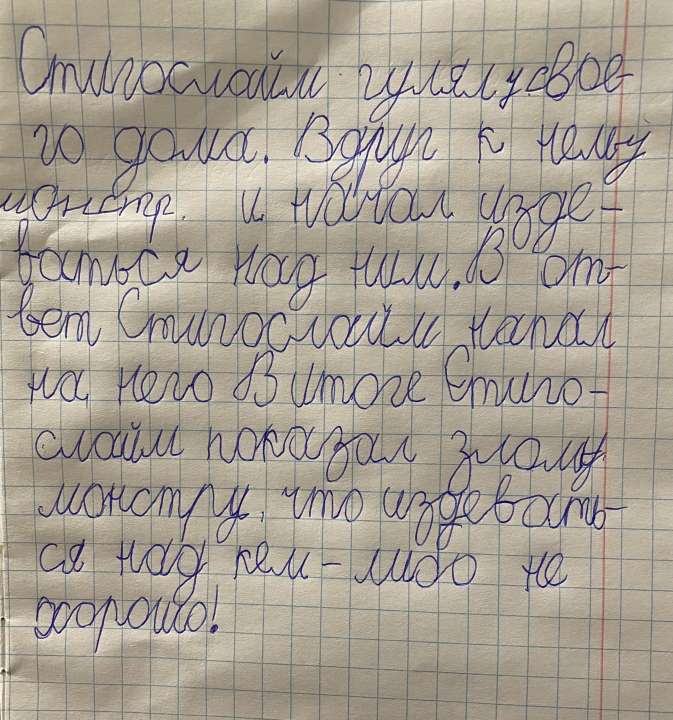 Стигослайм гулял у свое-
го дома. Вдруг к нему
монстр. и начал изде-
ваться над ним. В от-
вет Стигослайм напал
на него В итоге Стиго-
слайм показал злому
монстру, что издевать-
ся над кем-либо не
хорошо!